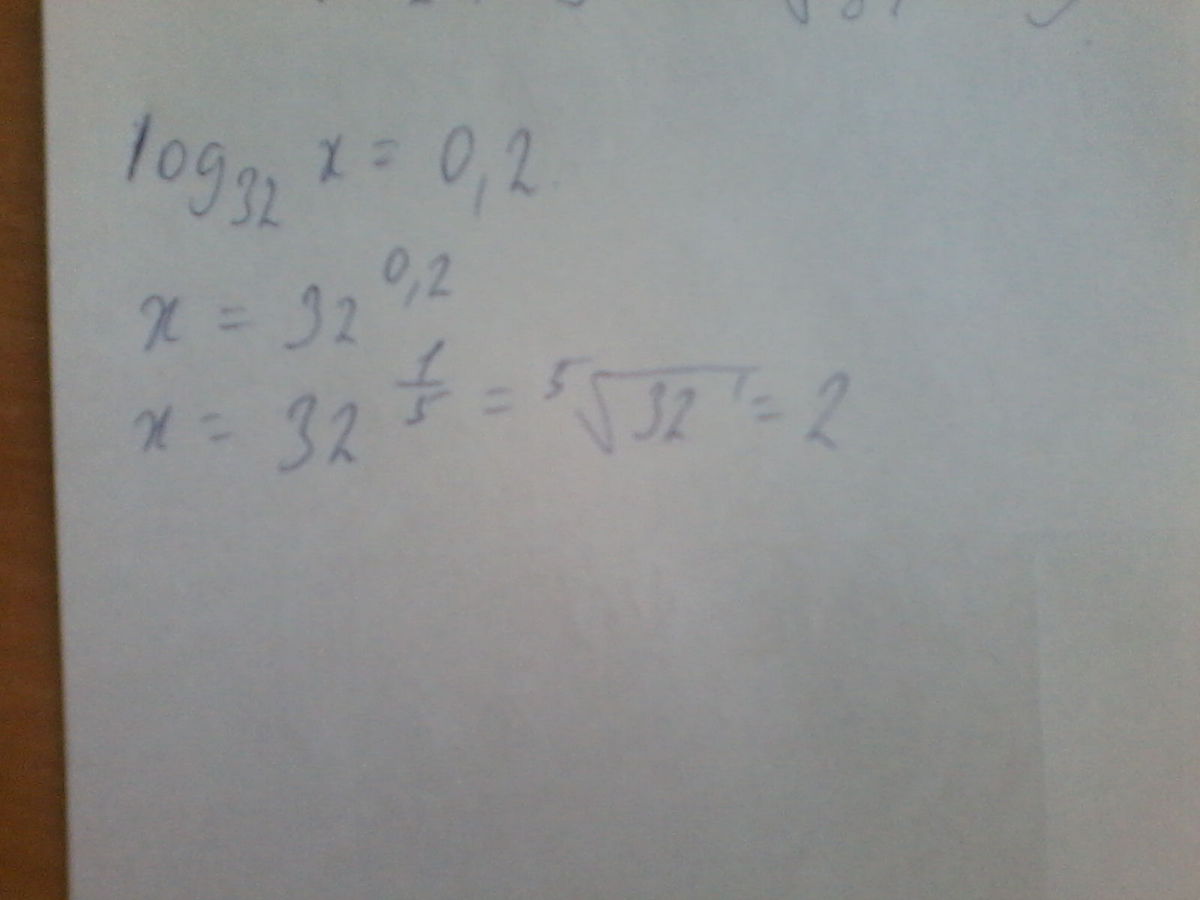 log₃₂ x = 0,2
x = 32^0,2
x = 32^(1/5) = ⁵√32 = 2